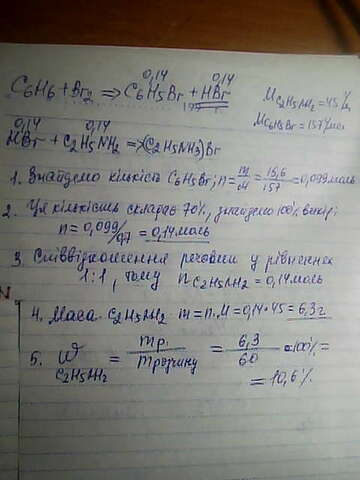 0,14 0,14
C6H6 + Br2 => C6H5Br + HBr
M C2H5NH2 = 45 г/м
M C6H5Br = 157 г/моль
0,14 0,14
HBr + C2H5NH2 => (C2H5NH3)Br
1. Знайдемо кількість C6H5Br; n = m/M = 15,6/157 = 0,099 моль
2. Ця кількість складає 70%, знайдемо 100% вихід:
n = 0,099/0,7 = 0,14 моль
3. Співвідношення речовин у рівняннях
1:1, тому n C2H5NH2 = 0,14 моль
4. Маса C2H5NH2 m = n·M = 0,14·45 = 6,3 г
5. W C2H5NH2 = mр./mрозчину = 6,3/60 · 100% =
= 10,6%